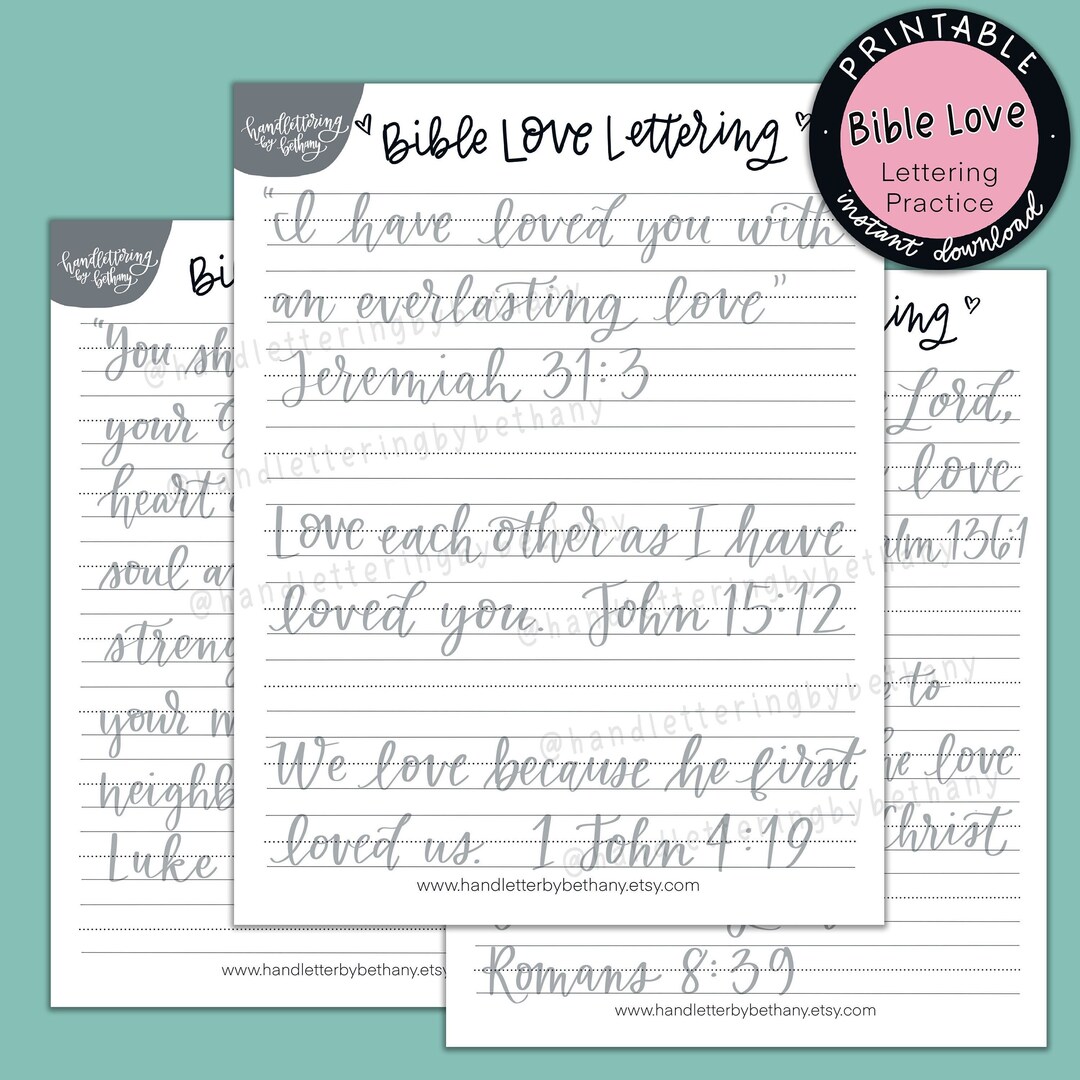 PRINTABLE
Bible Love
Lettering
Practice
instant download
handlettering
by bethany
Bible Love Lettering
"I have loved you with
an everlasting love"
Jeremiah 31:3
Love each other as I have
loved you. John 15:12
We love because he first
loved us. 1 John 4:19
www.handletterbybethany.etsy.com
@handletteringbybethany
@handletteringbybethany
@handletteringbybethany
@handletteringbybethany
@handletteringbybethany
@handletteringbybethany
handlettering
by bethany
Bi
"You sh
your G
heart
soul a
streng
your m
neighb
Luke
www.handletterbybethany.etsy
ing
Lord,
love
alm 136:1
to
he love
Christ
Romans 8:39
www.handletterbybethany.etsy.com